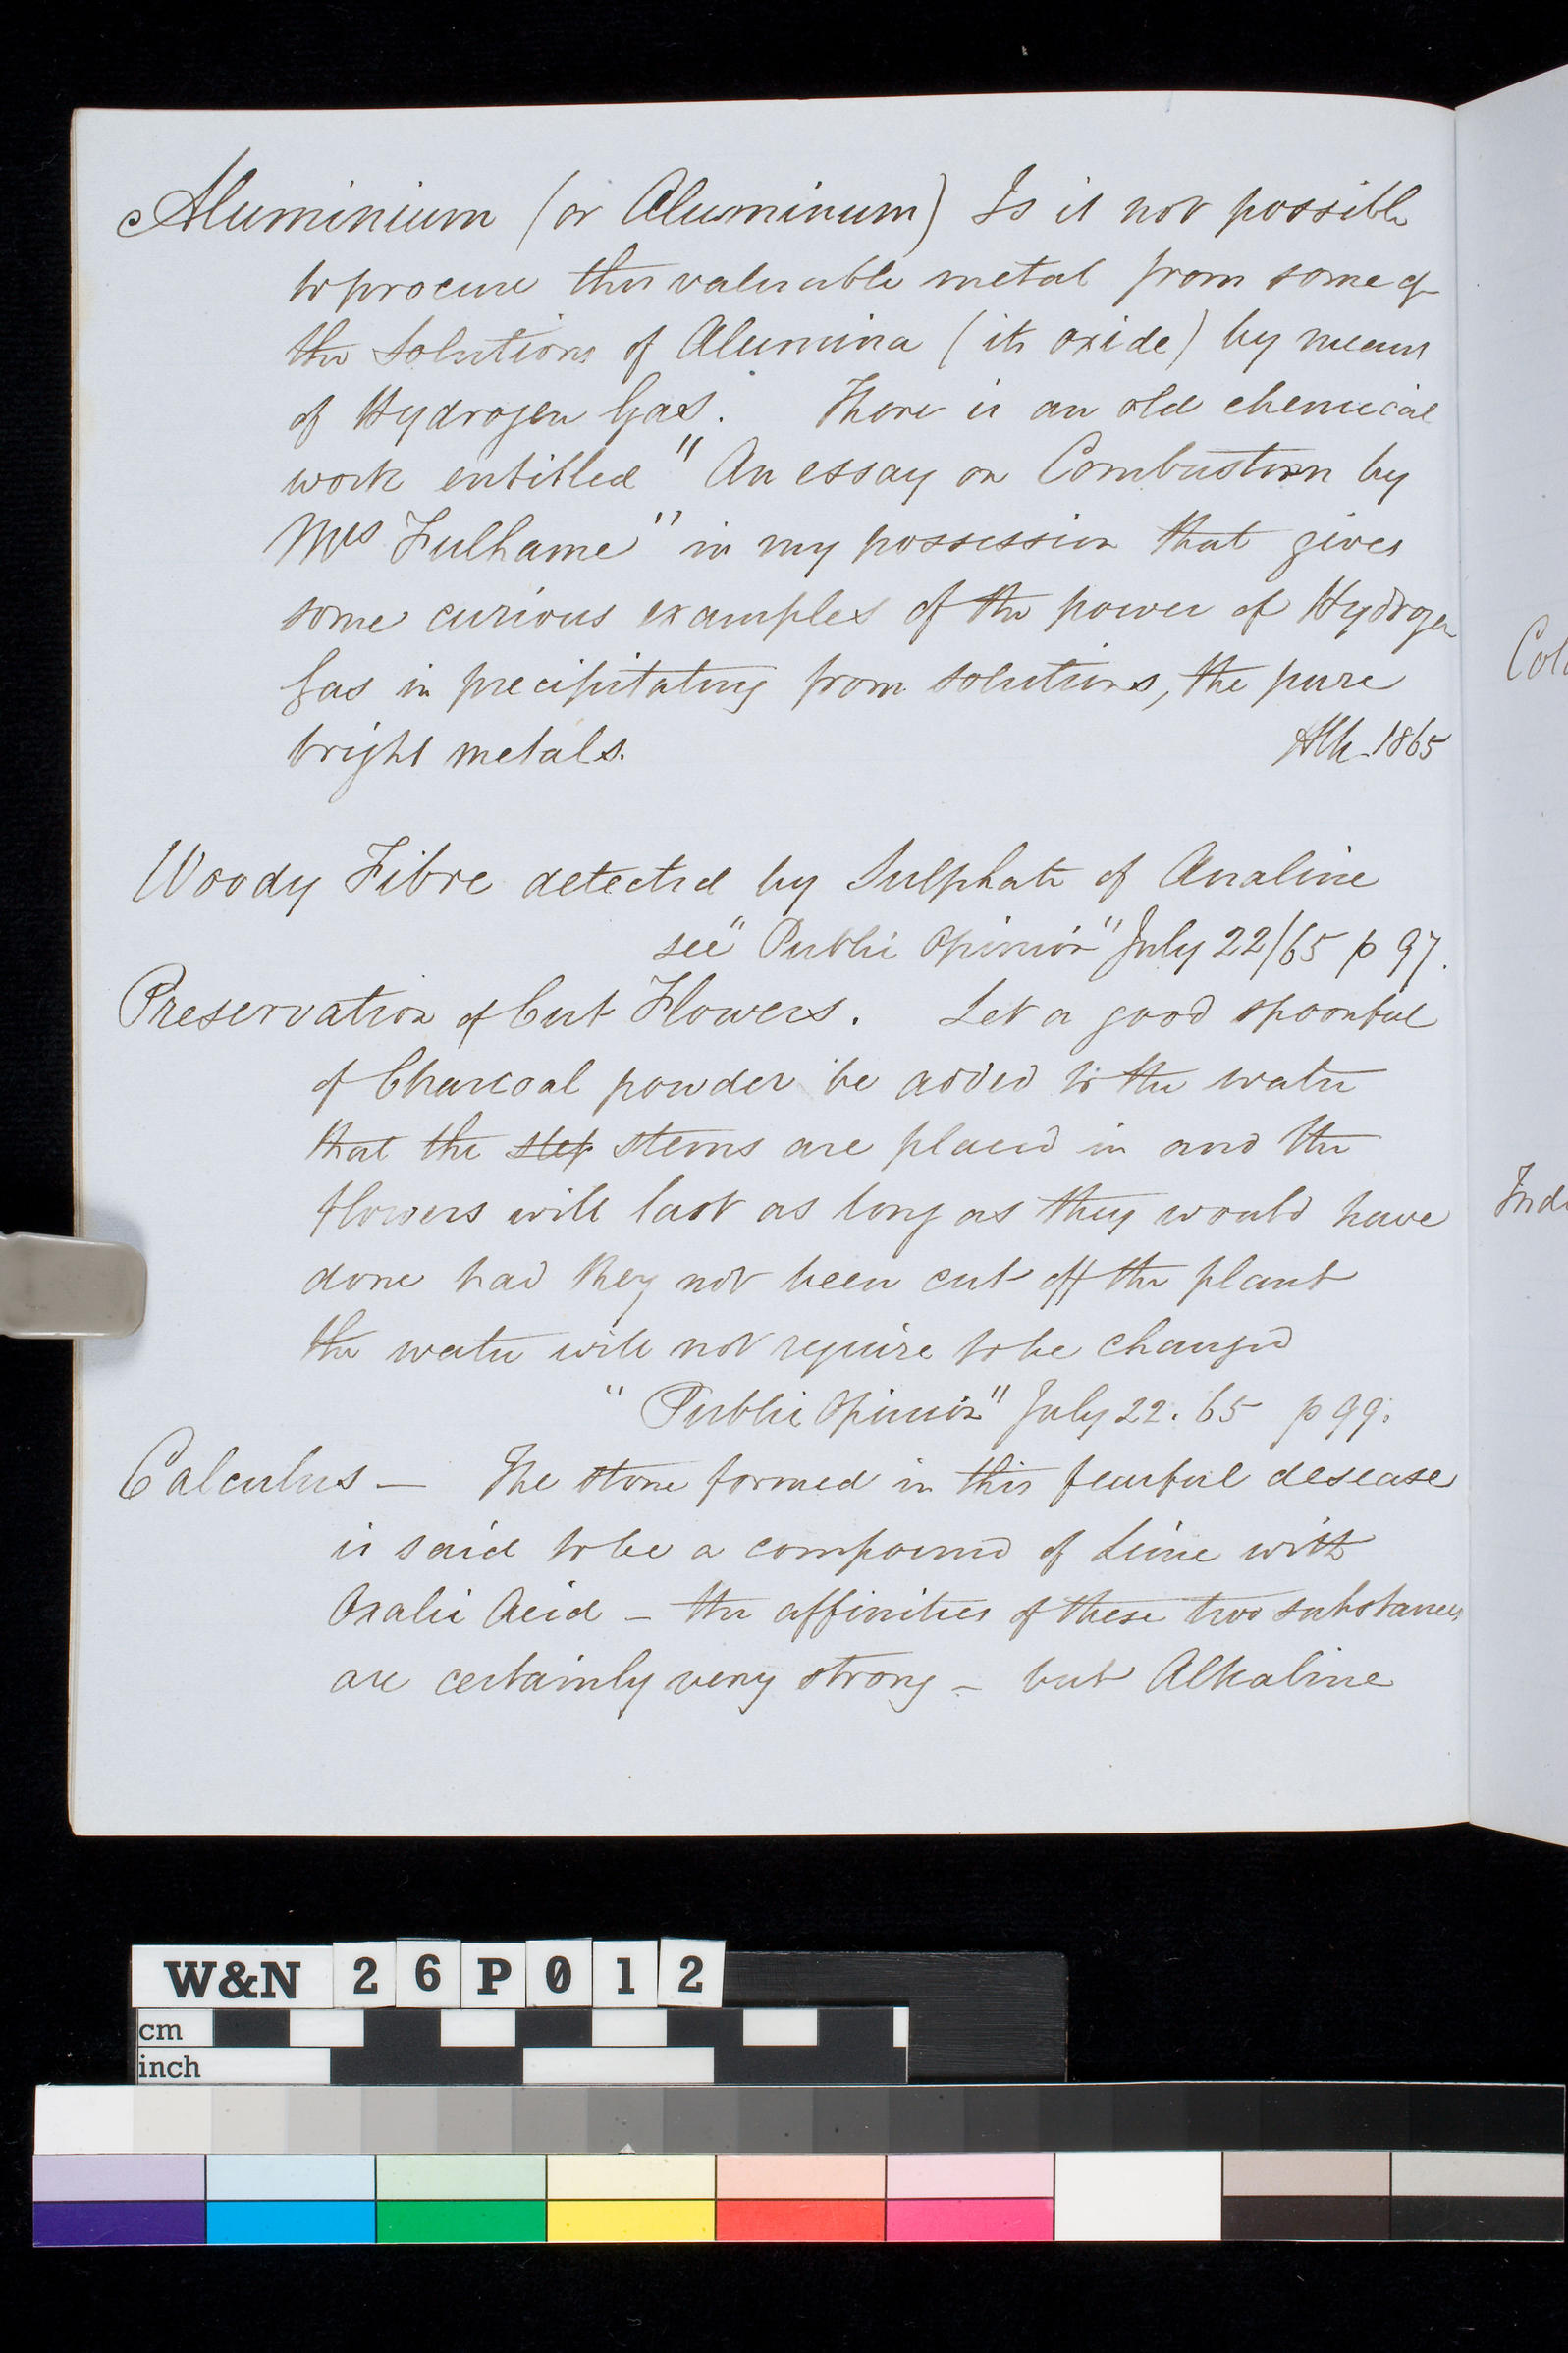 Aluminium (or Aluminum) Is it not possible
to procure this valuable metal from some of
the Solutions of Alumina (its oxide) by means
of Hydrogen Gas. There is an old chemical
work entitled "An essay on Combustion by
Mrs Fulhame" in my possession that gives
some curious examples of the power of Hydrogen
Gas in precipitating from solutions, the pure
bright metals. 1865
Woody Fibre detected by Sulphate of Analine
see "Public Opinion" July 22/65 p 97.
Preservation of Cut Flowers. Let a good spoonful
of Charcoal powder be added to the water
that the step stems are placed in and the
flowers will last as long as they would have
done had they not been cut off the plant
the water will not require to be changed
"Public Opinion" July 22. 65 p 99.
Calculus — The stone formed in this fearful desease
is said to be a compound of Lime with
Oxalic Acid — the affinities of these two substances
are certainly very strong — but Alkaline
Colo
Inde
W&N 26P012
cm
inch